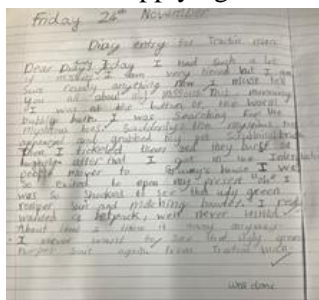 Friday 24th November
Diary entry for Traction man
Dear Diary, Today I had such a lot
missions. I am very tired but I am
Sure ready anything now I must tell
you all about my missions this morning
I was at the bottom of the
bubbly bath. I was searching for the
mysterious Suddenly the mysterious
appeared and grabbed my pet Scrubbing brush
Then I tickeled them and they burst
laughter after that I got in the
people mover to Granny's house I was
So excited to open my present when I
was So shocked to see that ugly green
romper Suit and matching bonnet. I
wanted a jetpack, well never mind
About time I threw it away anyway
I never want to see that ugly green
romper Suit again from Traction man
Well done